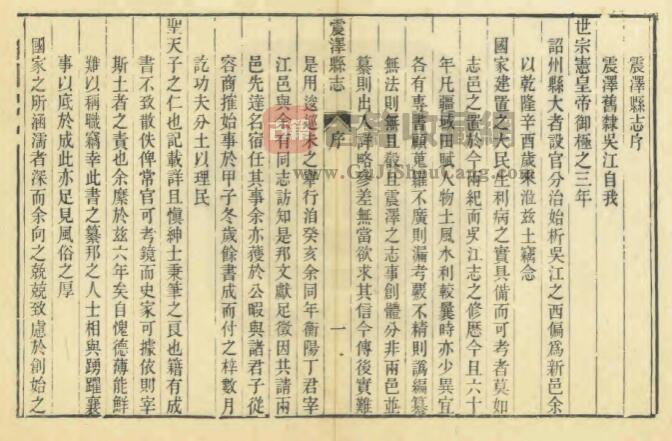 震澤縣志序
震澤舊隸吳江自我
世宗憲皇帝御極之三年
詔州縣大者設官分治始析吳江之西偏爲新邑余
以乾隆辛酉歲來涖茲土竊念
國家建置之大民生利病之實具備而可考者莫如
志邑之置於今兩紀而吳江志之修歷今且六十
年凡疆域田賦人物土風水利較曩時亦少異宜
各有專書顧蒐羅不廣則漏考覈不精則譌編纂
無法則無且震澤之志事創體分非兩邑並
纂則出入詳略參差無當欲求其信今傳後實難
震澤縣志
序
一
是用逡巡未之舉行洎癸亥余同年衡陽丁君宰
江邑與余有同志訪知是邦文獻足徵因共請兩
邑先達名宿任其事余亦獲於公暇與諸君子從
容商搉始事於甲子冬歲餘書成而付之梓數月
訖功夫分土以理民
聖天子之仁也記載詳且愼紳士秉筆之良也籍有成
書不致散佚俾常官可考鏡而史家可據依則宰
斯土者之責也余縻於茲六年矣自愧德薄能鮮
難以稱職竊幸此書之纂邦之人士相與踴躍襄
事以底於成此亦足見風俗之厚
國家之所涵濡者深而余向之兢兢致慮於創始之
古籍收藏網
www.GuJiShouCang.com